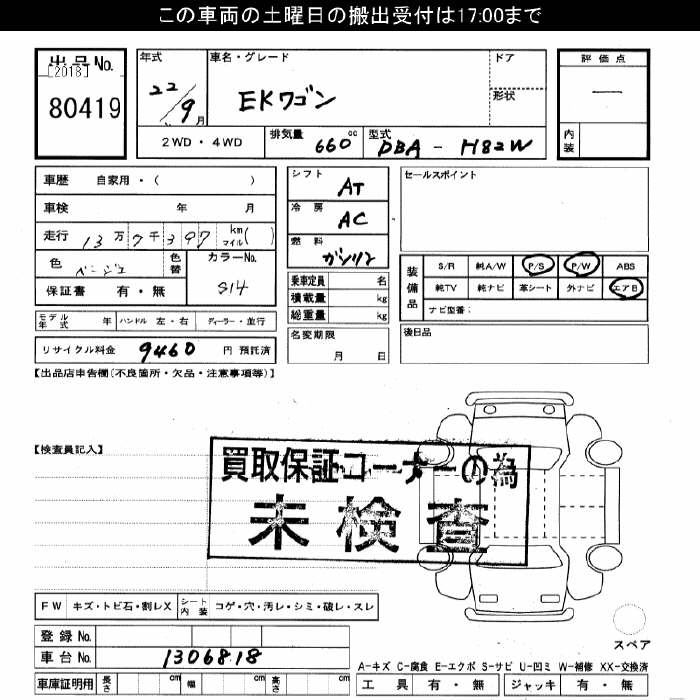 この車両の土曜日の搬出受付は17:00まで
出品No.
[2018]
80419
年式
22/9月
車名・グレード
EKワゴン
ドア
形状
評価点
—
内装
2WD・4WD
排気量 660 cc
型式 DBA - H82W
車歴 自家用・( )
車検 年 月
走行 13万7千397 km マイル( )
色 ベージュ 色替
カラーNo. S14
保証書 有・無
シフト AT
冷房 AC
燃料 ガソリン
乗車定員 名
積載量 kg
総重量 kg
セールスポイント
装備品
S/R 純A/W P/S P/W ABS
純TV 純ナビ 革シート 外ナビ エアB
ナビ型番:
モデル年式 年 ハンドル 左・右 ディーラー・並行
名変期限 月 日
後日品
リサイクル料金 9460 円 預託済
【出品店申告欄(不良箇所・欠品・注意事項等)】
【検査員記入】
買取保証コーナーの為
未検査
FW キズ・トビ石・割レX シート内装 コゲ・穴・汚レ・シミ・破レ・スレ
スペア
登録No.
車台No. 1306818
A-キズ C-腐食 E-エクボ S-サビ U-凹ミ W-補修 XX-交換済
車庫証明用 長さ cm 幅 cm 高さ cm
工具 有・無 ジャッキ 有・無